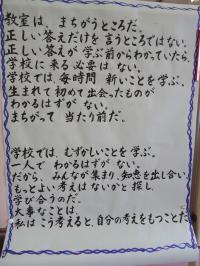 教室は、まちがうところだ。
正しい答えだけを 言うところではない。
正しい答えが 学ぶ前からわかっていたら、
学校に来る必要は ない。
学校では、毎時間 新しいことを学ぶ。
生まれて初めて出会ったものが
わかるはずが ない。
まちがって 当たり前だ。
学校では、むずかしいことを 学ぶ。
一人で わかるはずが ない。
だから、みんなが集まり、知恵を出し合い、
もっとよい考えは ないかと 探し、
学び合うのだ。
大事なことは、
私は こう考えると、自分の考えをもつことだ